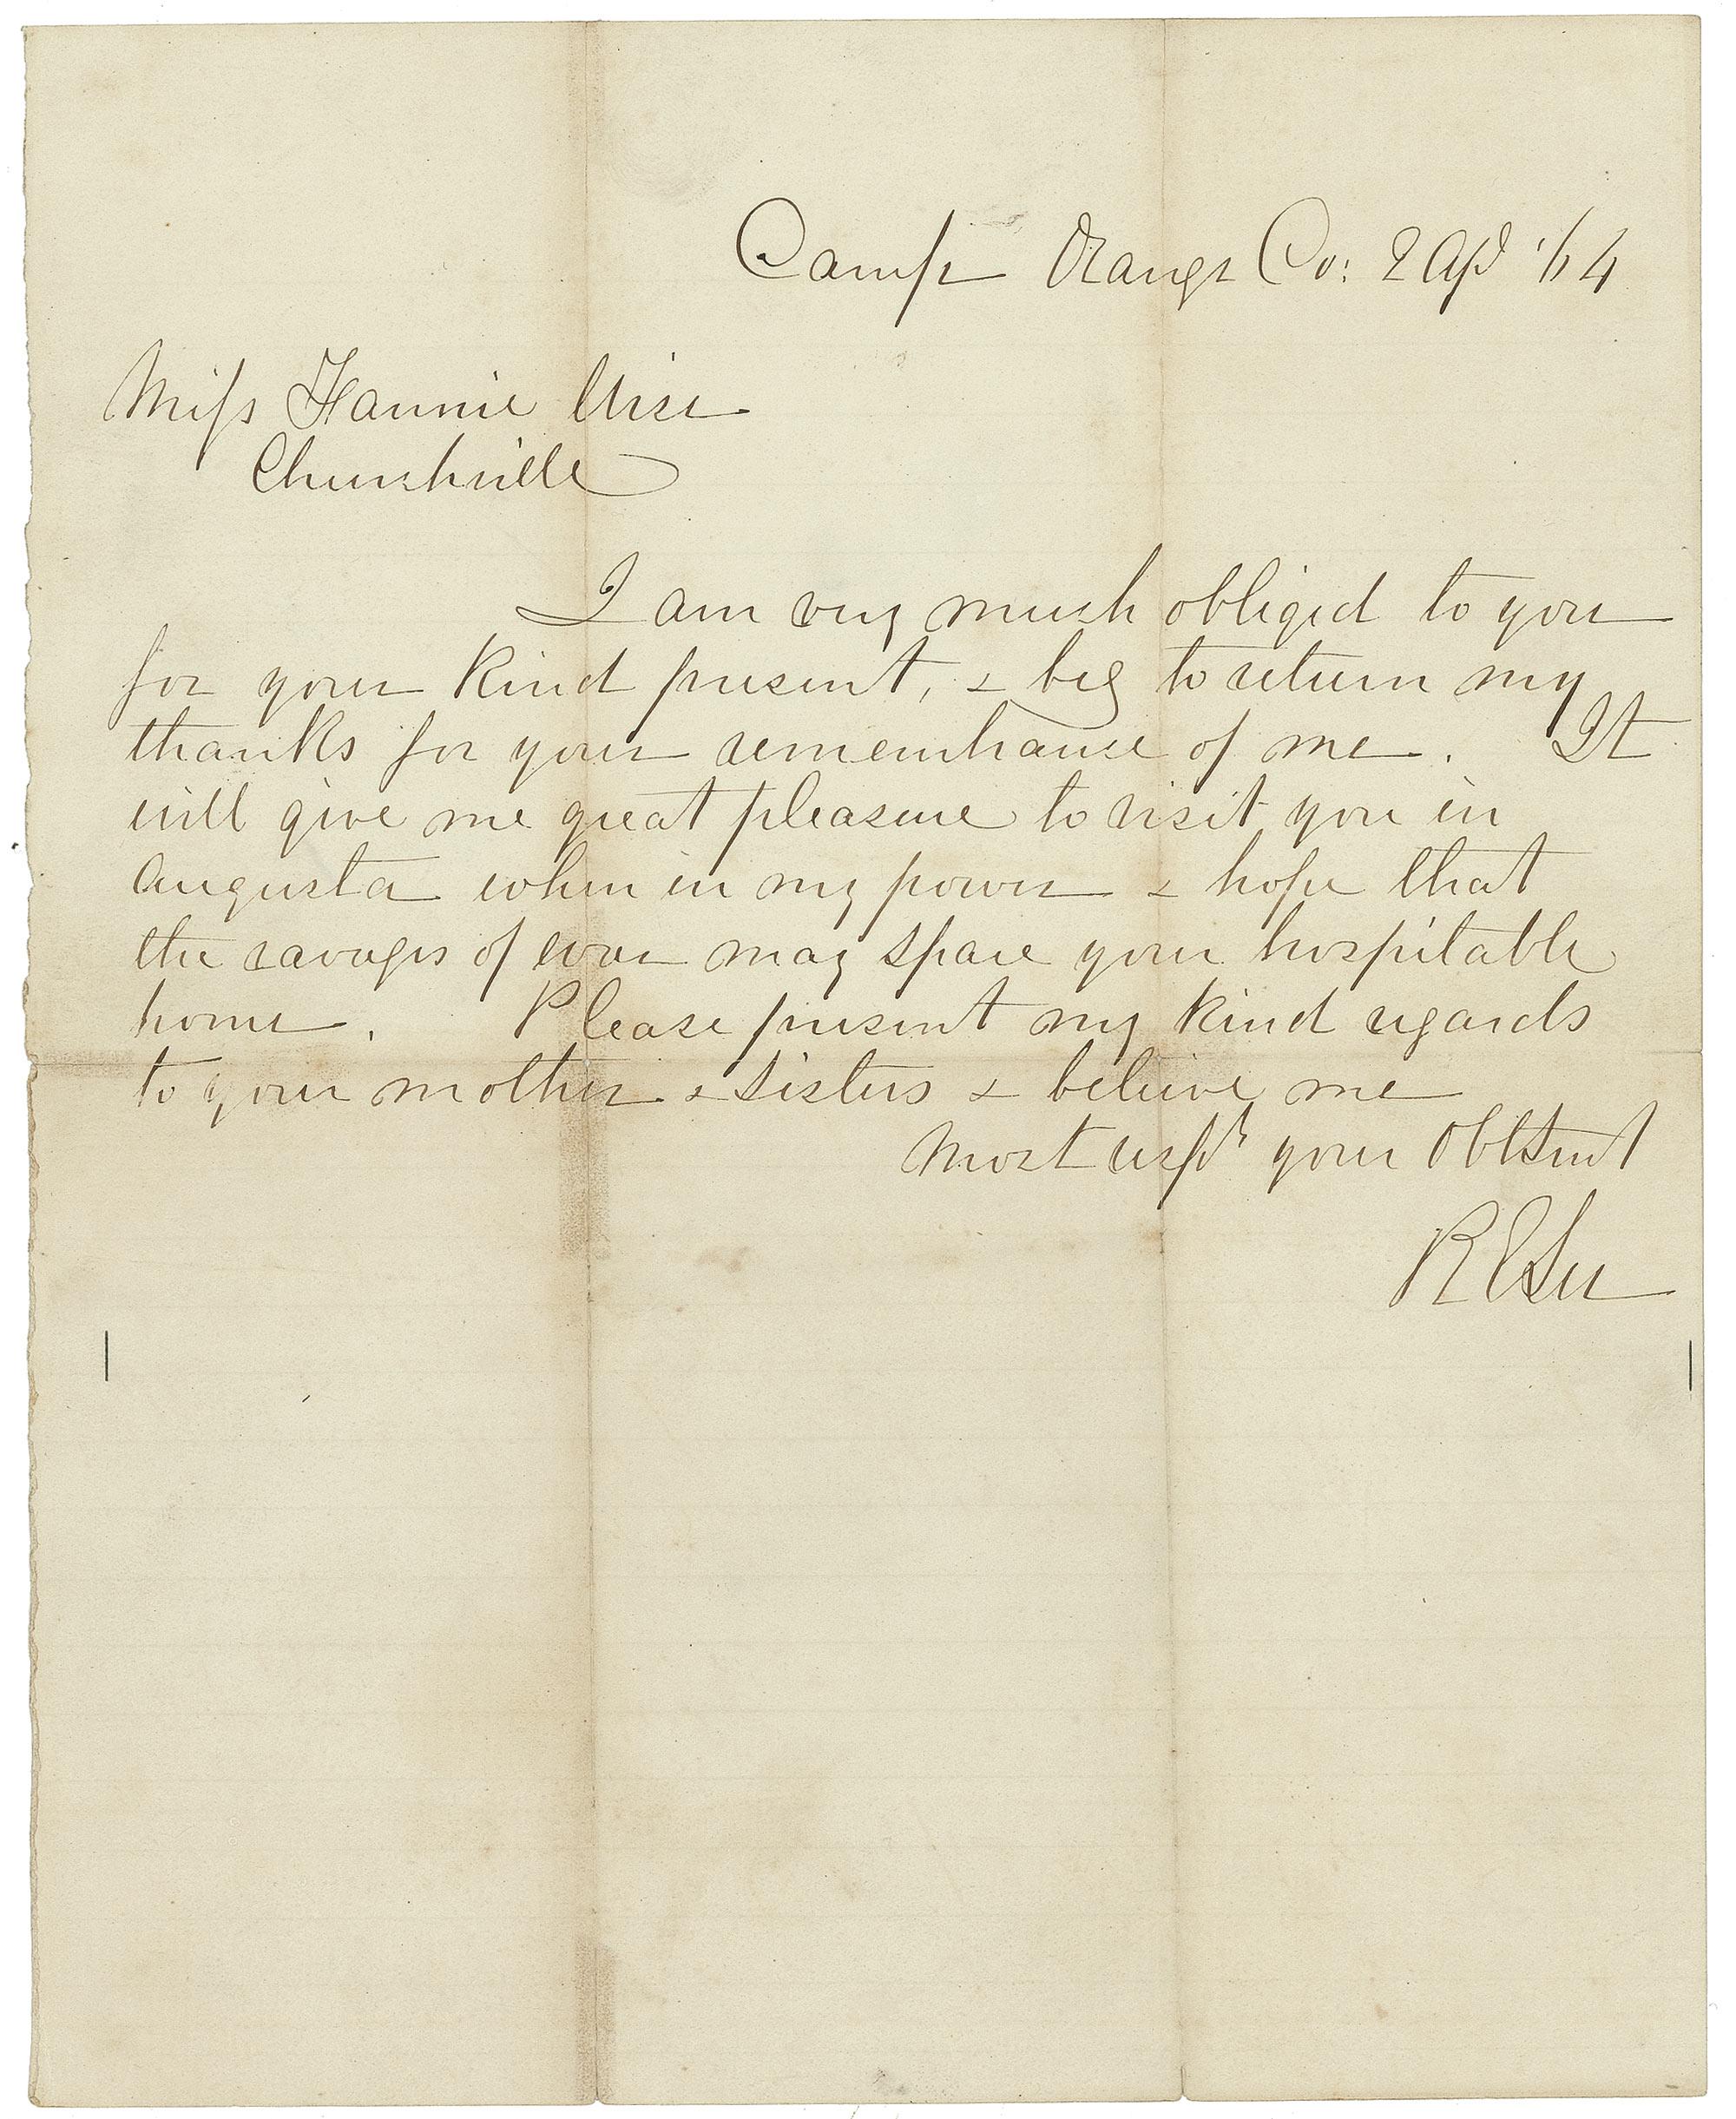 Camp Orange Co: 2 Apl '64
Miss Fannie Wise
Churchville
I am very much obliged to you
for your kind present, & beg to return my
thanks for your remembrance of me. It
will give me great pleasure to visit you in
Augusta when in my power & hope that
the ravages of war may spare your hospitable
home. Please present my kind regards
to your mother & sisters & believe me
Most respy your Obt Servt
R E Lee